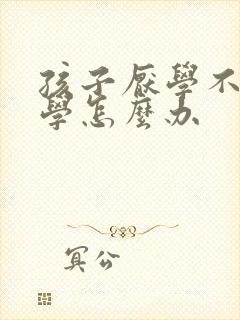 孩子厭學不
學怎麼办
冥公